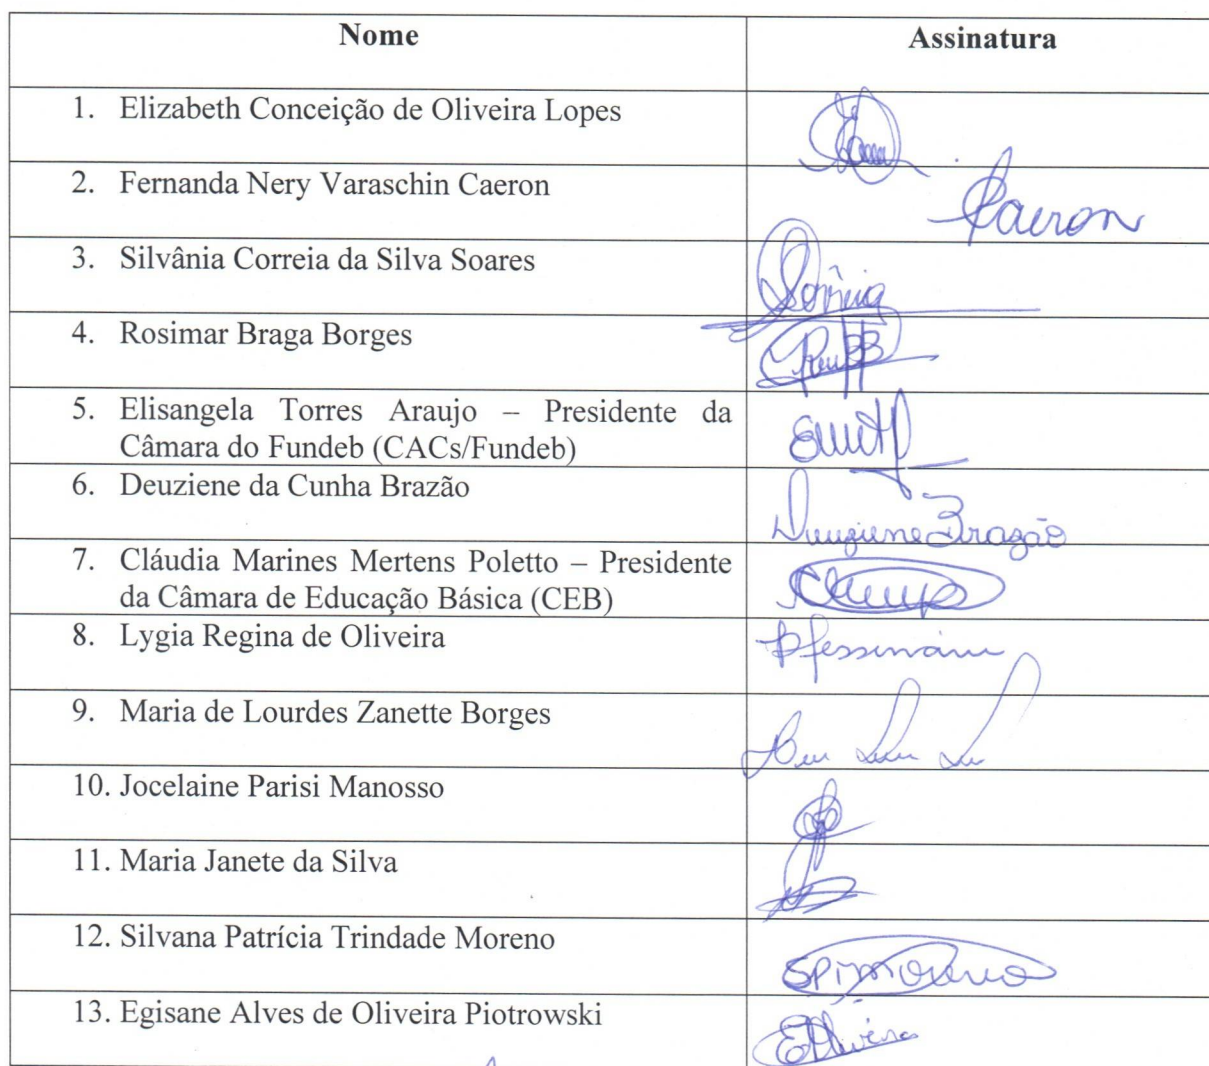 Nome Assinatura
1. Elizabeth Conceição de Oliveira Lopes
2. Fernanda Nery Varaschin Caeron Caeron
3. Silvânia Correia da Silva Soares
4. Rosimar Braga Borges
5. Elisangela Torres Araujo – Presidente da
Câmara do Fundeb (CACs/Fundeb)
6. Deuziene da Cunha Brazão Deuziene Brazão
7. Cláudia Marines Mertens Poletto – Presidente
da Câmara de Educação Básica (CEB)
8. Lygia Regina de Oliveira
9. Maria de Lourdes Zanette Borges
10. Jocelaine Parisi Manosso
11. Maria Janete da Silva
12. Silvana Patrícia Trindade Moreno
13. Egisane Alves de Oliveira Piotrowski